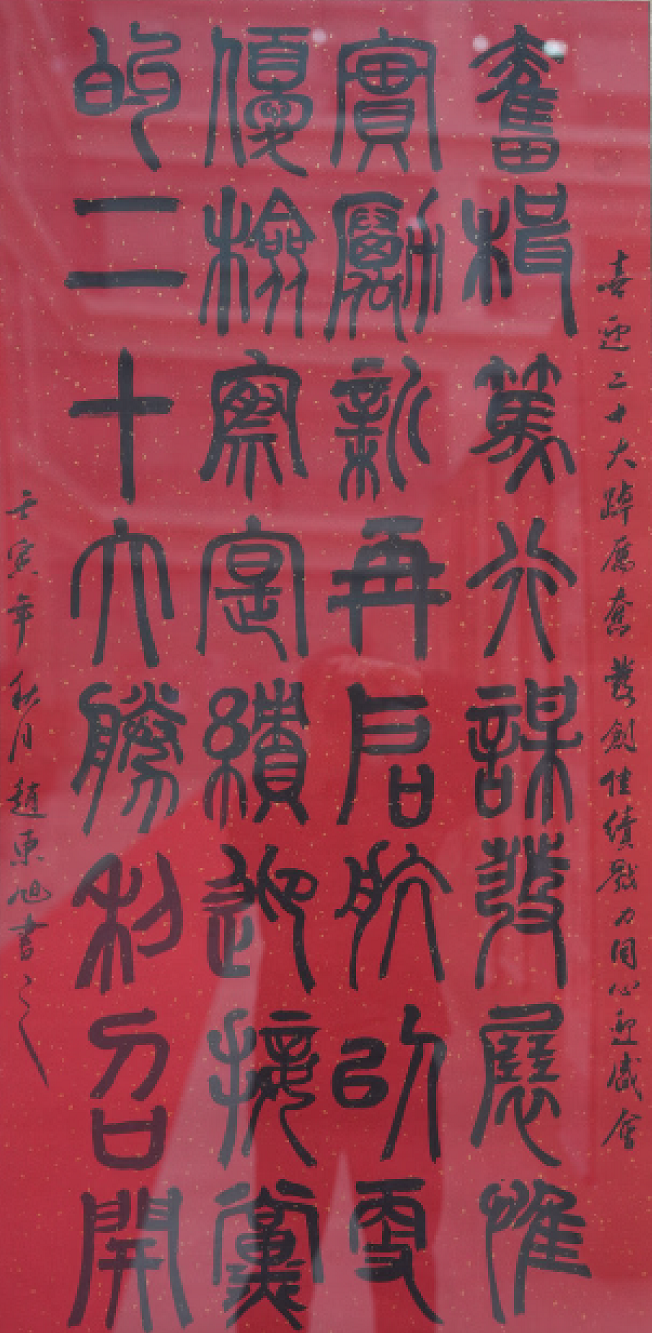 喜迎二十大踔厲奮發創佳績戮力同心迎盛會
奮楫篤行謀發展惟
實勵新再启航以更
優檢察寔績迎接黨
的二十大勝利召開
壬寅年秋月趙東旭書之